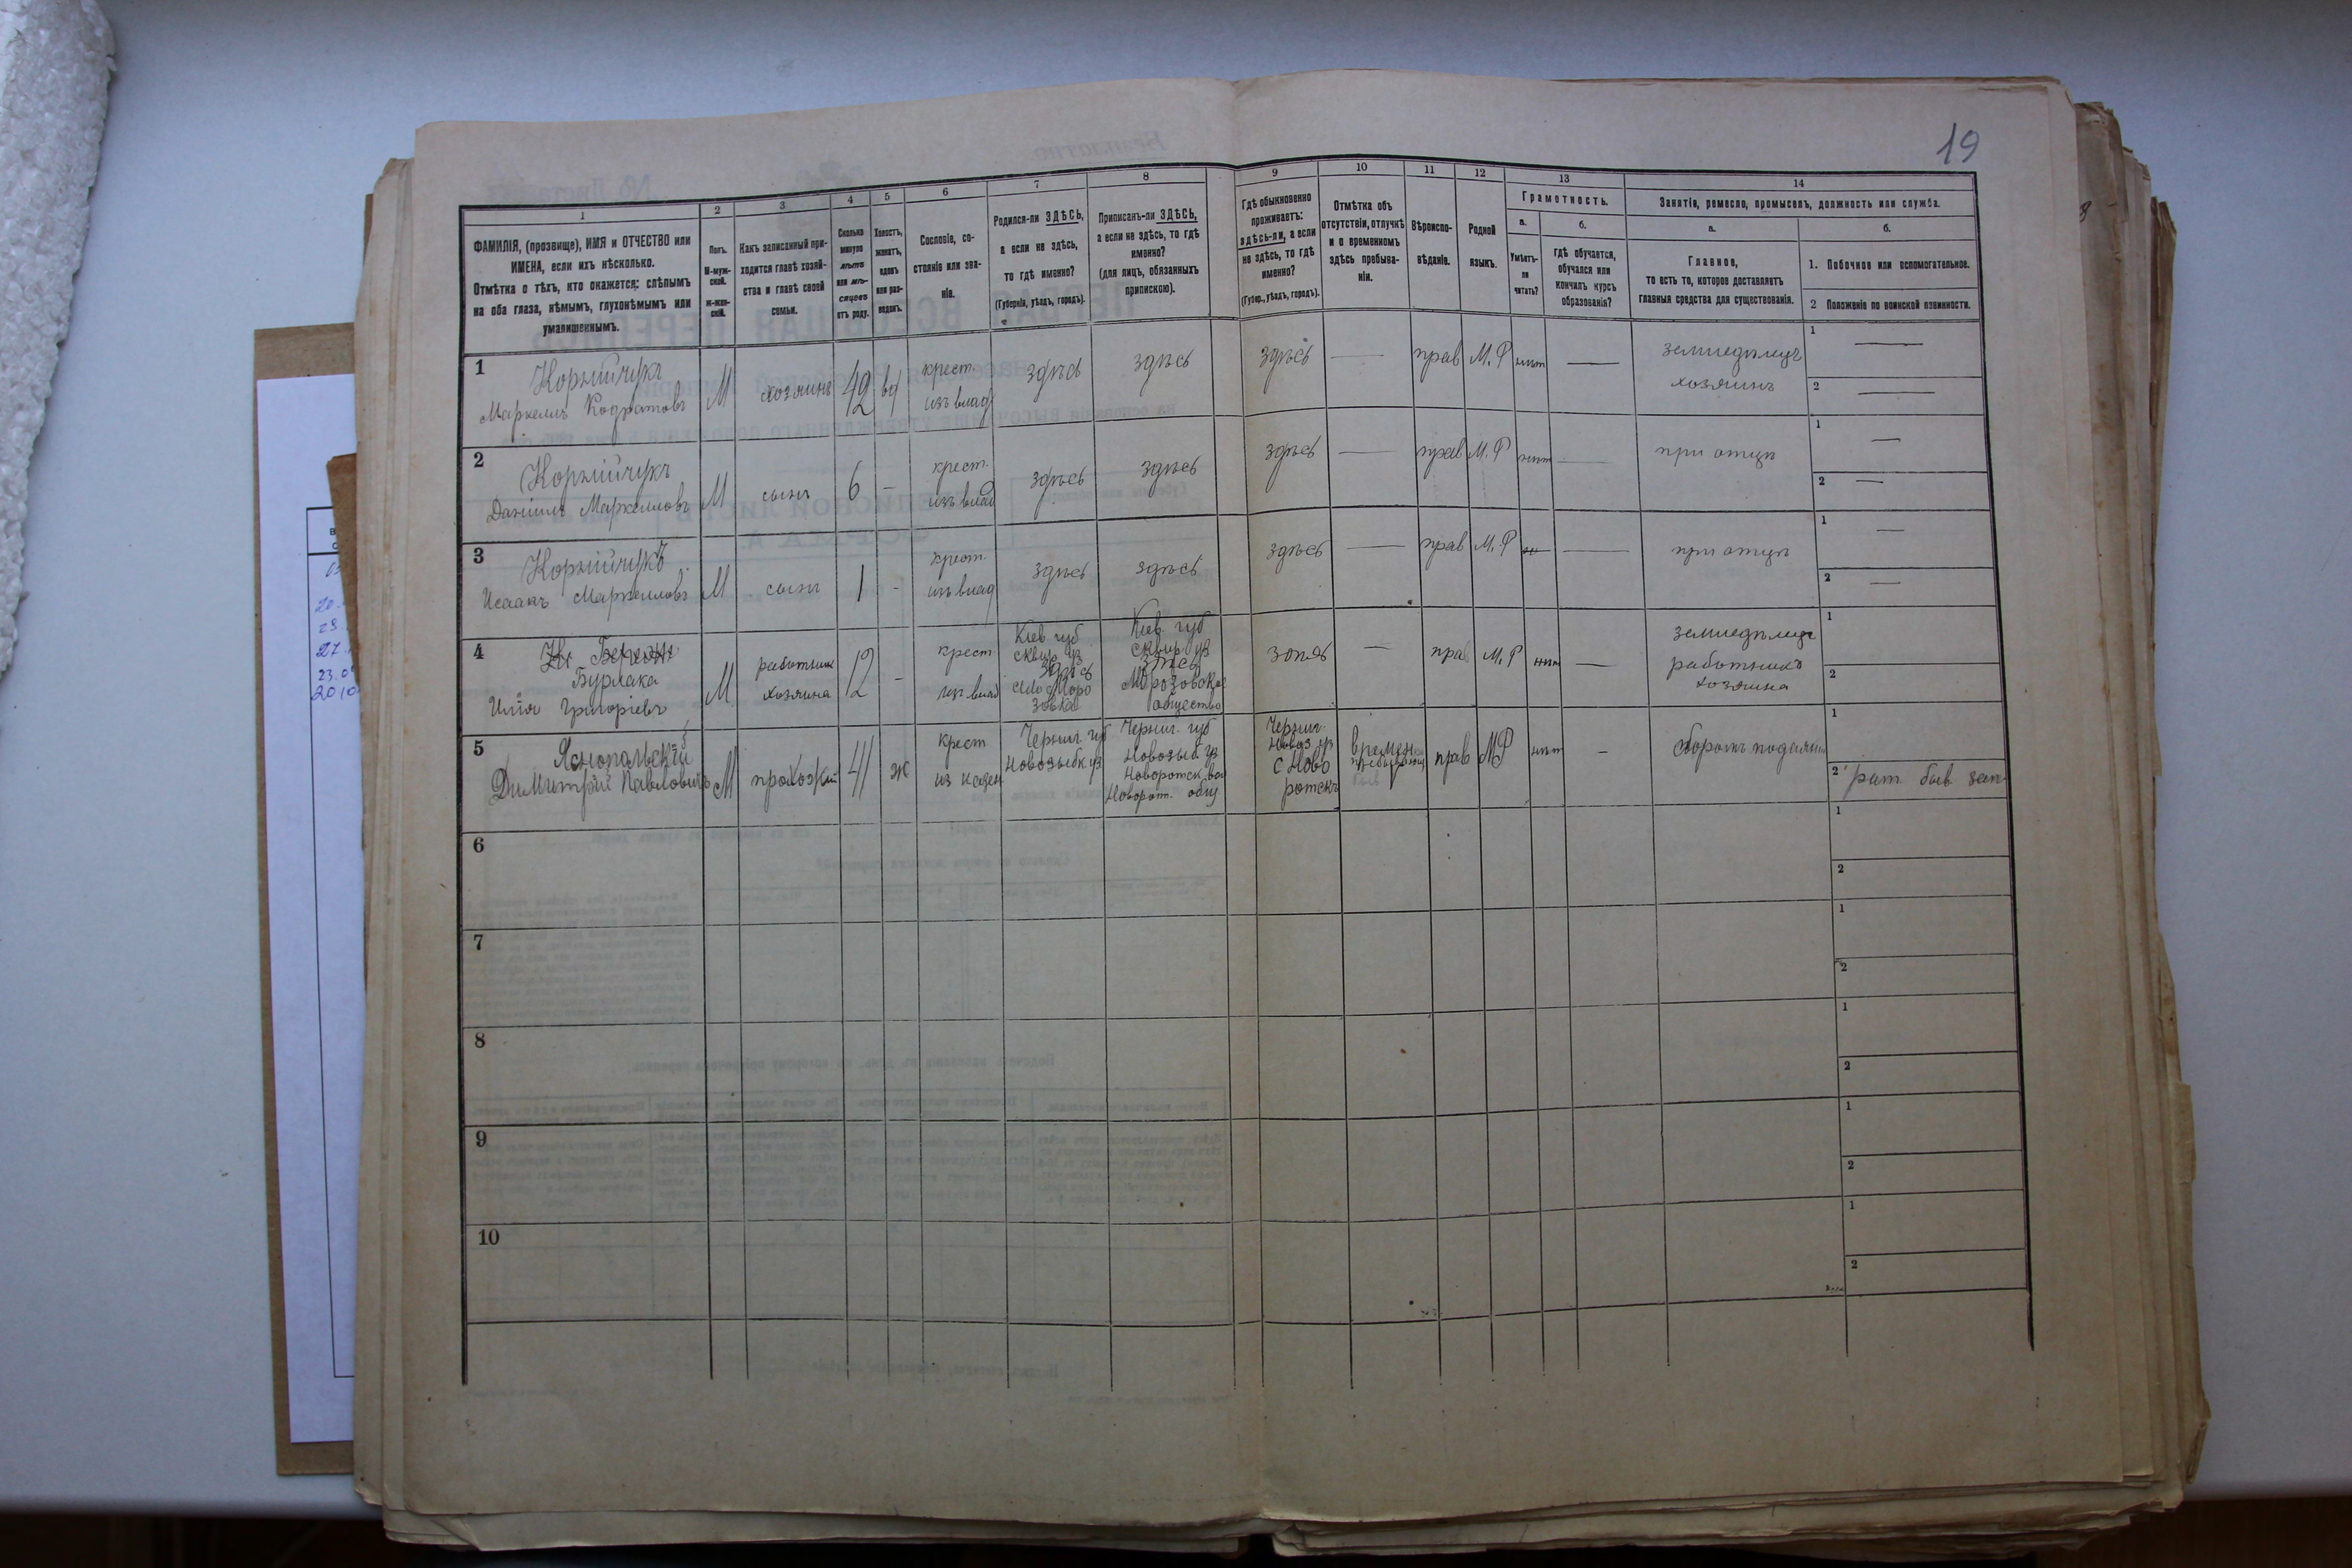 19
1 2 3 4 5 6 7 8 9 10 11 12 13 14
ФАМИЛІЯ, (прозвище), ИМЯ и ОТЧЕСТВО или
ИМЕНА, если ихъ нѣсколько.
Отмѣтка о тѣхъ, кто окажется: слѣпымъ
на оба глаза, нѣмымъ, глухонѣмымъ или
умалишеннымъ.
Полъ.
М-муж-
ской.
ж-жен-
скій.
Какъ записанный при-
ходится главѣ хозяй-
ства и главѣ своей
семьи.
Сколько
минуло
лѣтъ
или мѣ-
сяцевъ
отъ роду.
Холостъ,
женатъ,
вдовъ
или раз-
веденъ.
Сословіе, со-
стояніе или зва-
ніе.
Родился-ли ЗДѢСЬ,
а если не здѣсь,
то гдѣ именно?
(Губернія, уѣздъ, городъ).
Приписанъ-ли ЗДѢСЬ,
а если не здѣсь, то гдѣ
именно?
(для лицъ, обязанныхъ
припискою).
Гдѣ обыкновенно
проживаетъ:
здѣсь-ли, а если
не здѣсь, то гдѣ
именно?
(Губер., уѣздъ, городъ).
Отмѣтка объ
отсутствіи, отлучкѣ
и о временномъ
здѣсь пребыва-
ніи.
Вѣроиспо-
вѣданіе.
Родной
языкъ.
Грамотность.
а.
Умѣетъ-
ли
читать?
б.
гдѣ обучается,
обучался или
кончилъ курсъ
образованія?
Занятія, ремесло, промыселъ, должность или служба.
а.
Главное,
то есть то, которое доставляетъ
главныя средства для существованія.
б.
1. Побочное или вспомогательное.
2 Положеніе по воинской повинности.
1
Корнійчукъ
Маркелъ Кодратовъ
М
хозяинъ
42
вд
крест.
изъ влад
здѣсь
здѣсь
здѣсь
—
прав
М.Р
нѣт
—
земледѣлецъ
хозяинъ
1 —
2 —
2
Корнійчукъ
Даніилъ Маркеловъ
М
сынъ
6
-
крест.
изъ влад
здѣсь
здѣсь
здѣсь
—
прав
М.Р
нѣт
—
при отцѣ
1 —
2 —
3
Корнійчукъ
Исаакъ Маркеловъ
М
сынъ
1
-
крест.
изъ влад
здѣсь
здѣсь
здѣсь
—
прав
М.Р
—
при отцѣ
1 —
2 —
4
Бурлака
Илія Григоріевъ
М
работник
хозяина
12
-
крест
изъ влад
Кіев губ
сквир уз
село Моро
зовка
Кіев. губ
сквир. уз
Морозовское
общество
—
прав
М.Р
нѣт
—
земледѣлецъ
работникъ
хозяина
1
2
5
Яснопольскій
Димитрій Павловичъ
М
прохожій
41
ж
крест
из казен
Черниг. губ
Новозыбк уз
Черниг. губ
Новозыб. уз
Новоротск. вол
Новорот. общ
Черниг.
Новоз уз
с Ново
ротскъ
времен
прав
МР
нѣт
-
сборомъ подаянія
1
2 рат. быв зап
6
1
2
7
1
2
8
1
2
9
1
2
10
1
2